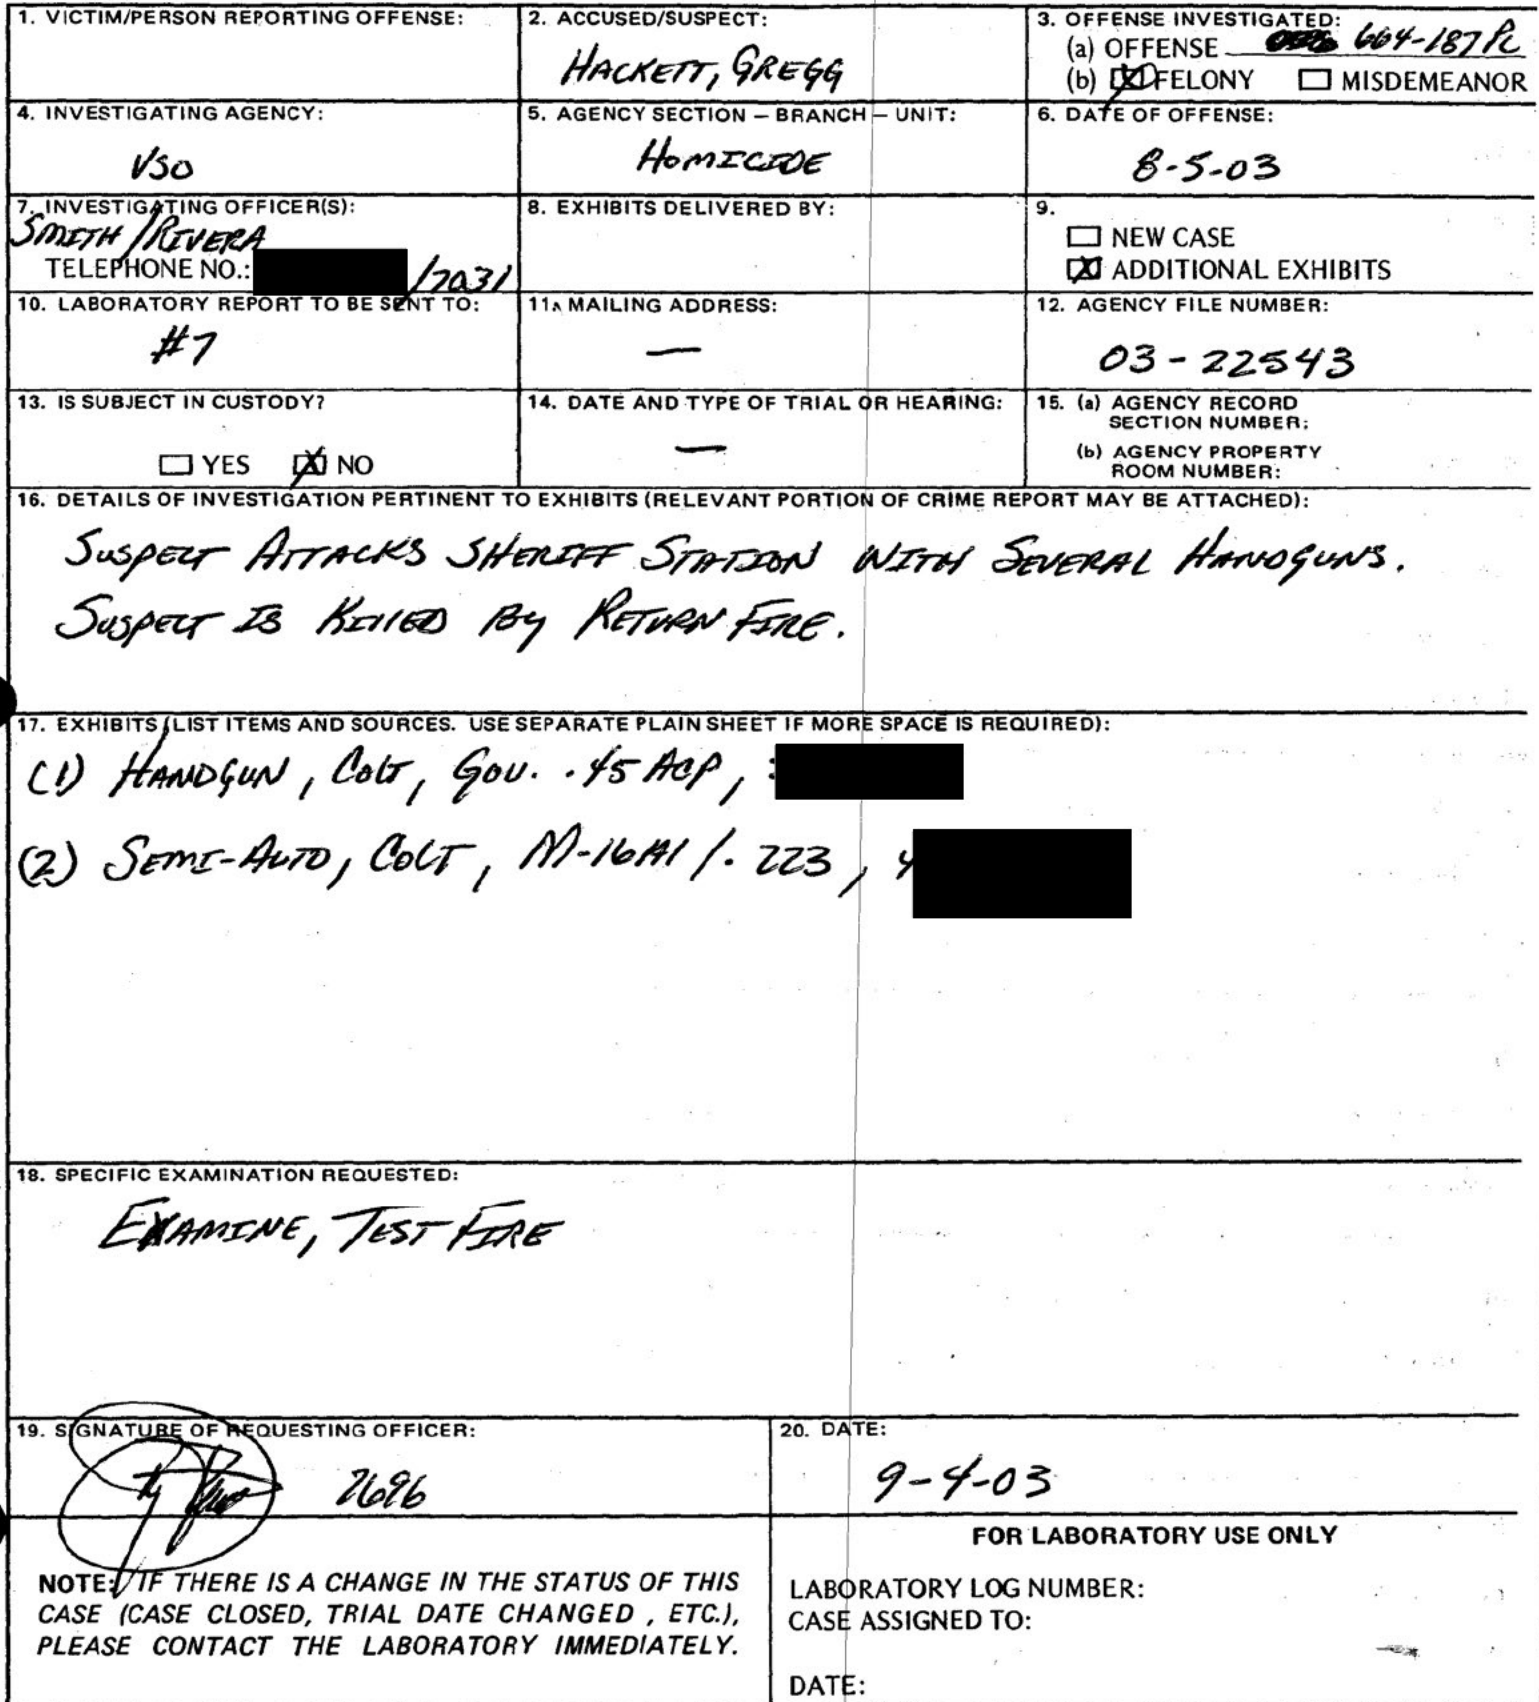 1. VICTIM/PERSON REPORTING OFFENSE:
2. ACCUSED/SUSPECT:
HACKETT, GREGG
3. OFFENSE INVESTIGATED:
(a) OFFENSE 664-187 PC
(b) FELONY MISDEMEANOR
4. INVESTIGATING AGENCY:
VSO
5. AGENCY SECTION – BRANCH – UNIT:
HOMICIDE
6. DATE OF OFFENSE:
8-5-03
7. INVESTIGATING OFFICER(S):
SMITH/RIVERA
TELEPHONE NO.: /7031
8. EXHIBITS DELIVERED BY:
9.
NEW CASE
ADDITIONAL EXHIBITS
10. LABORATORY REPORT TO BE SENT TO:
#7
11. MAILING ADDRESS:
—
12. AGENCY FILE NUMBER:
03-22543
13. IS SUBJECT IN CUSTODY?
YES NO
14. DATE AND TYPE OF TRIAL OR HEARING:
—
15. (a) AGENCY RECORD
SECTION NUMBER:
(b) AGENCY PROPERTY
ROOM NUMBER:
16. DETAILS OF INVESTIGATION PERTINENT TO EXHIBITS (RELEVANT PORTION OF CRIME REPORT MAY BE ATTACHED):
SUSPECT ATTACKS SHERIFF STATION WITH SEVERAL HANDGUNS.
SUSPECT IS KILLED BY RETURN FIRE.
17. EXHIBITS (LIST ITEMS AND SOURCES. USE SEPARATE PLAIN SHEET IF MORE SPACE IS REQUIRED):
(1) HANDGUN, COLT, GOV. .45 ACP,
(2) SEMI-AUTO, COLT, M-16A1/.223, 4
18. SPECIFIC EXAMINATION REQUESTED:
EXAMINE, TEST FIRE
19. SIGNATURE OF REQUESTING OFFICER:
2696
20. DATE:
9-4-03
NOTE: IF THERE IS A CHANGE IN THE STATUS OF THIS
CASE (CASE CLOSED, TRIAL DATE CHANGED , ETC.),
PLEASE CONTACT THE LABORATORY IMMEDIATELY.
FOR LABORATORY USE ONLY
LABORATORY LOG NUMBER:
CASE ASSIGNED TO:
DATE: